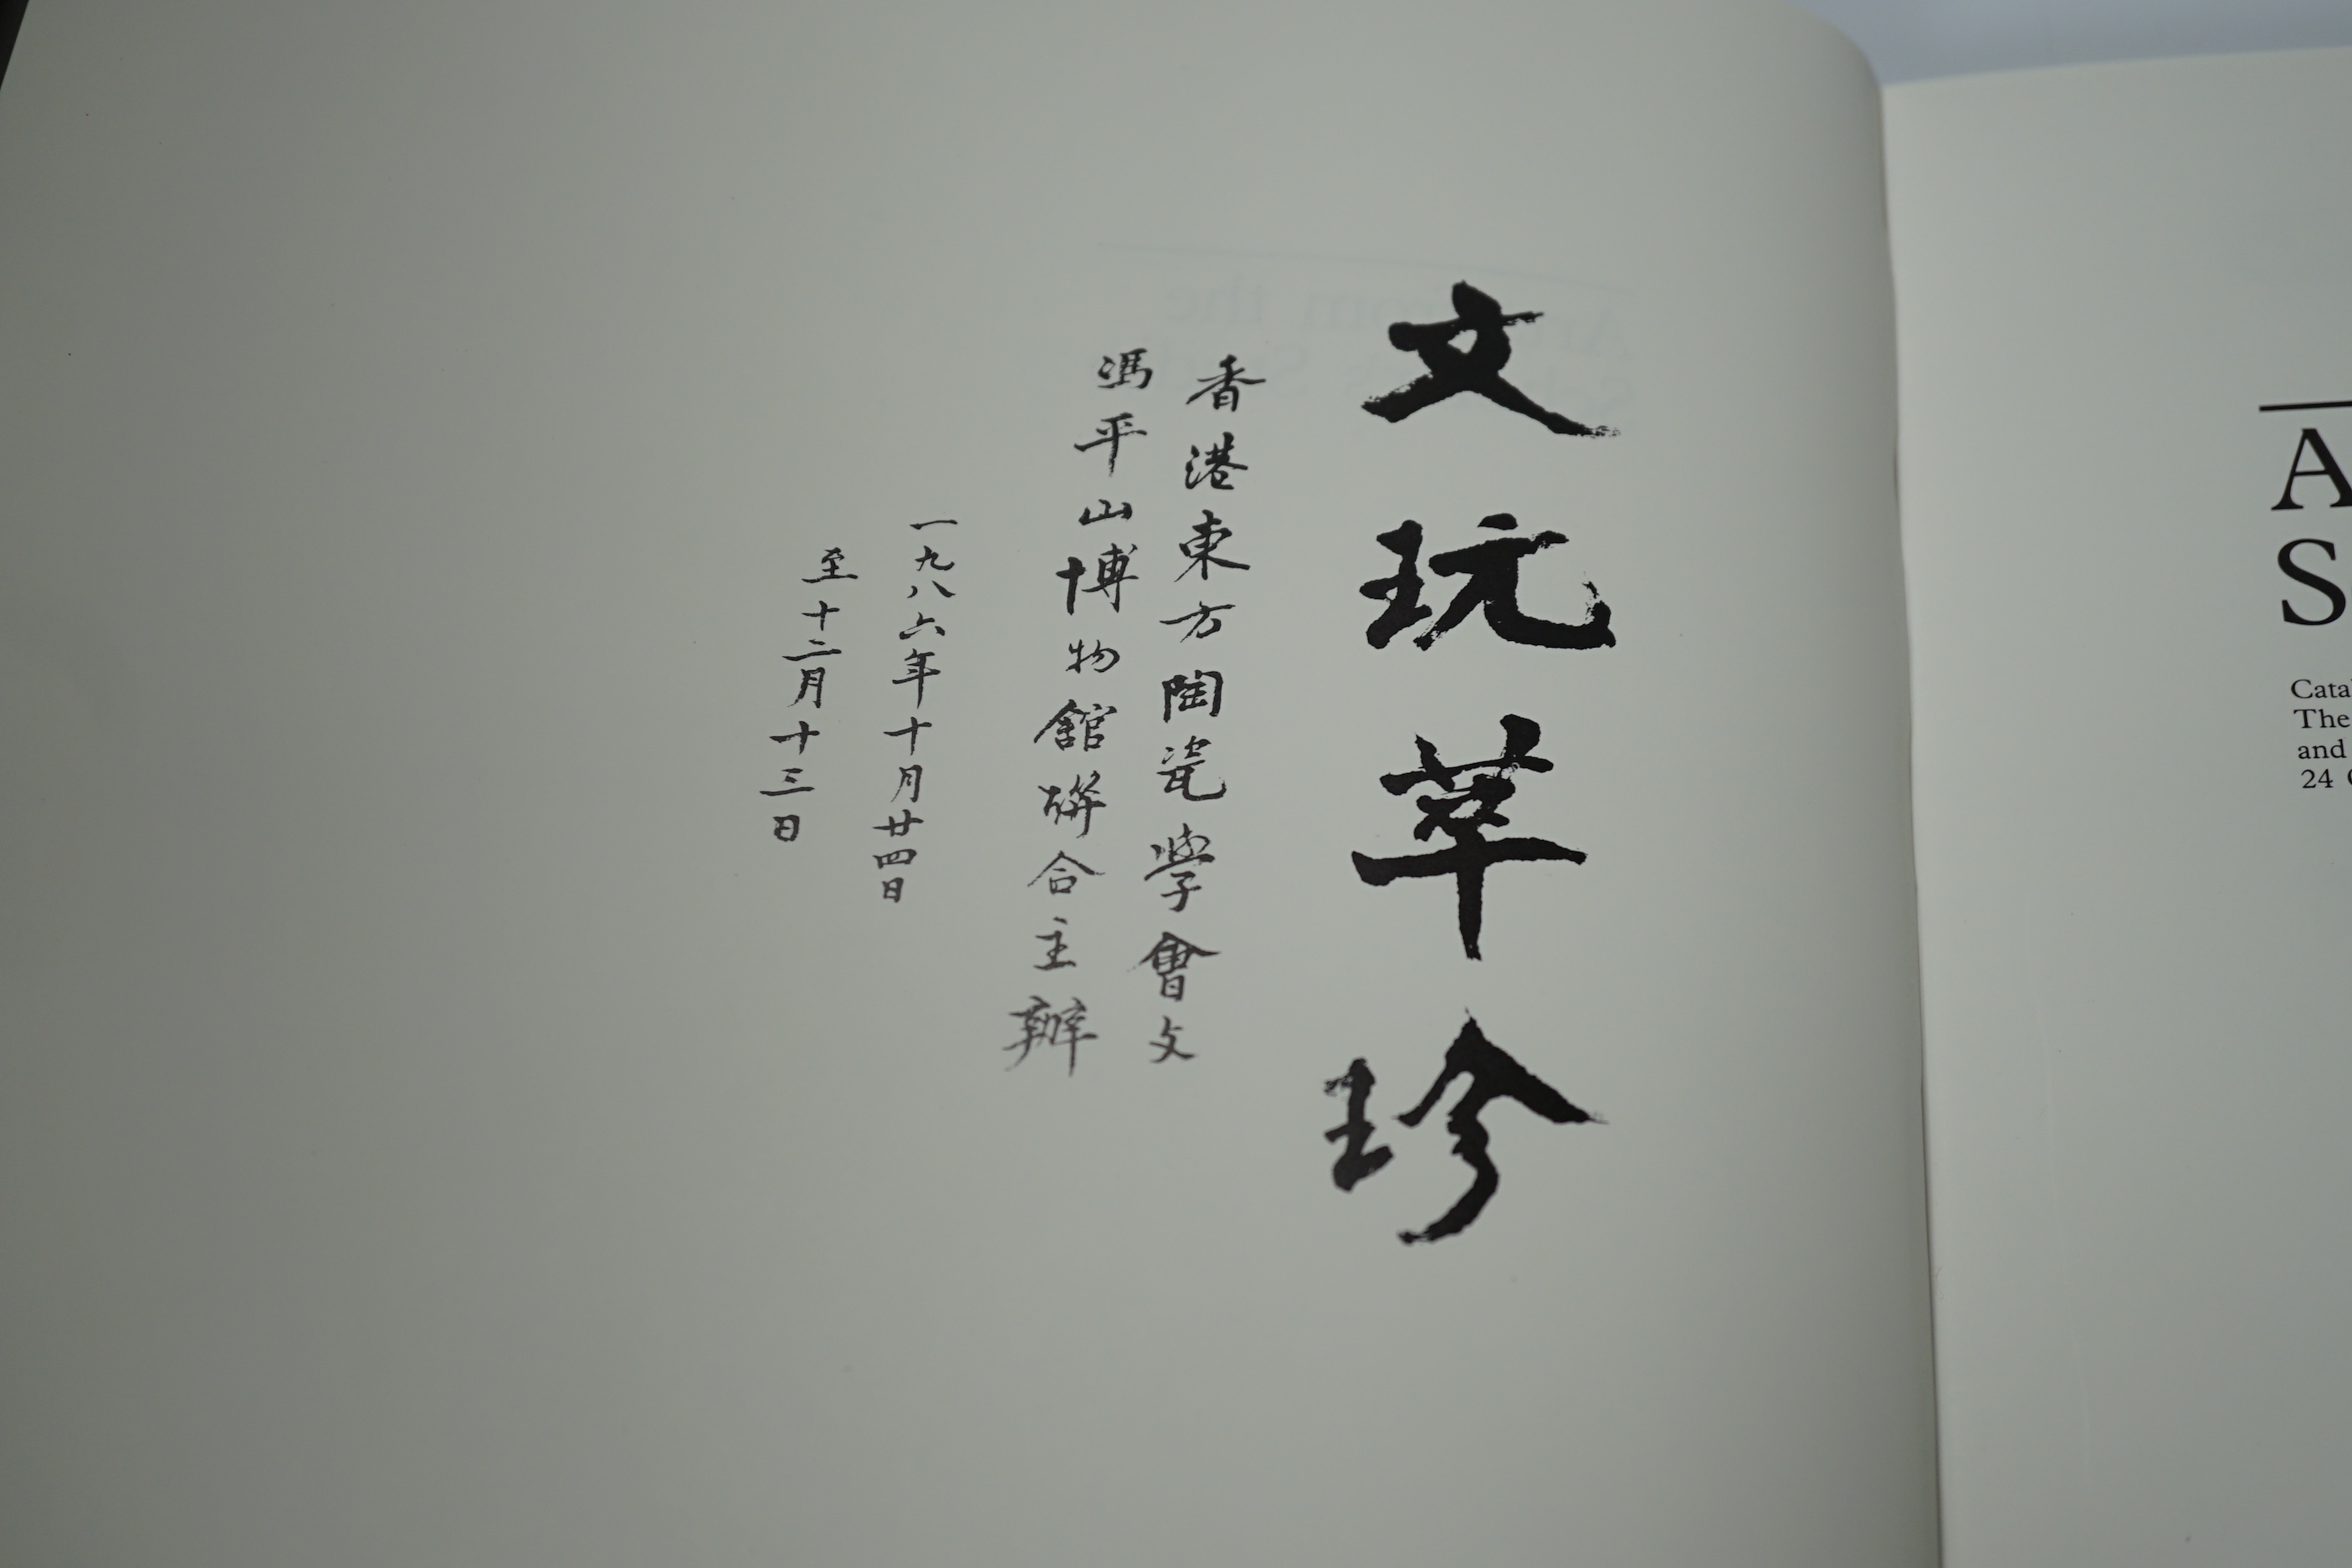 文玩萃珍
香港東方陶瓷學會文
馮平山博物館聯合主辦
一九八六年十月廿四日
至十二月十三日
A
S
Cata
The
and
24